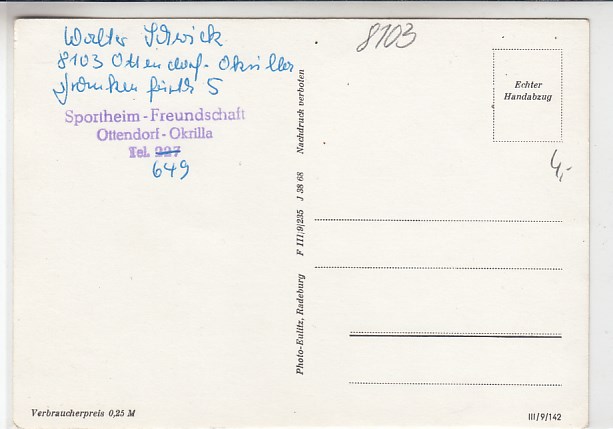 Walter
8103 Ottendorf-Okrilla
5
Sportheim-Freundschaft
Ottendorf-Okrilla
Tel. 227
649
8103
Echter
Handabzug
4,-
Photo-Eulitz, Radeburg F III/9/235 J 38 68 Nachdruck verboten
Verbraucherpreis 0,25 M
III/9/142